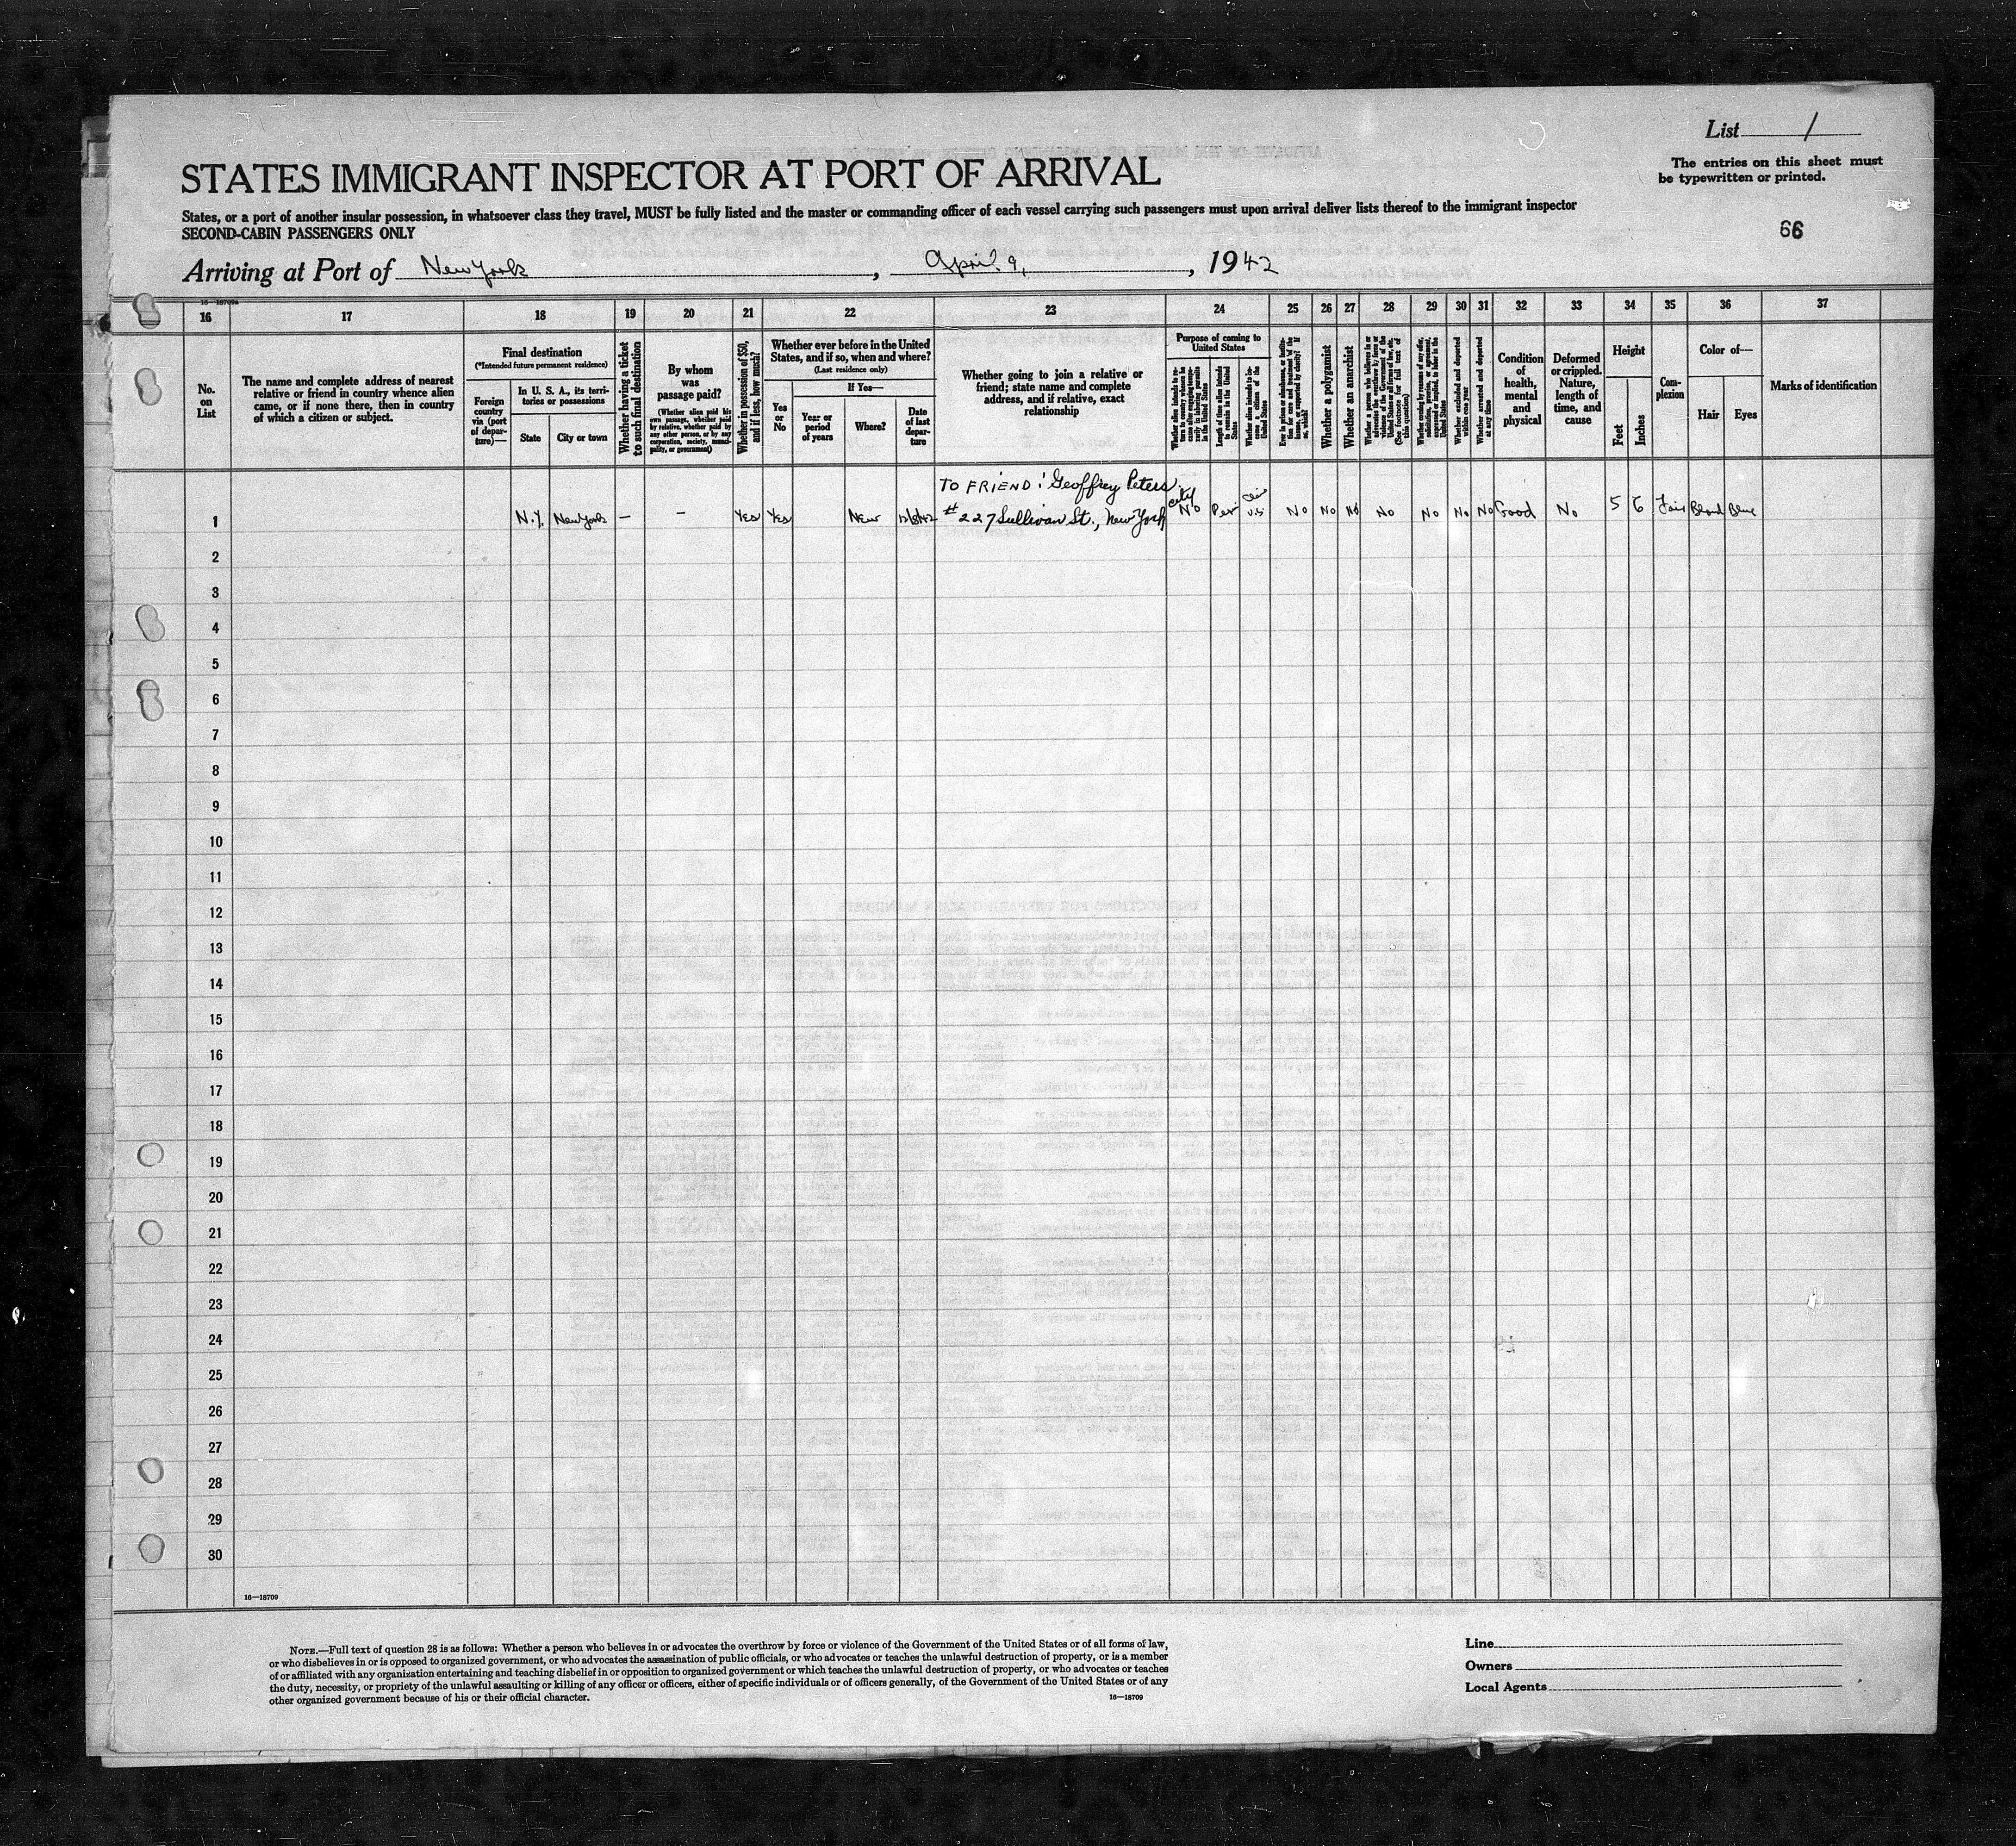 List 1
The entries on this sheet must
be typewritten or printed.
STATES IMMIGRANT INSPECTOR AT PORT OF ARRIVAL
States, or a port of another insular possession, in whatsoever class they travel, MUST be fully listed and the master or commanding officer of each vessel carrying such passengers must upon arrival deliver lists thereof to the immigrant inspector
SECOND-CABIN PASSENGERS ONLY
66
Arriving at Port of New York, April 9, 1942
16—18709a
16 17 18 19 20 21 22 23 24 25 26 27 28 29 30 31 32 33 34 35 36 37
No.
on
List
The name and complete address of nearest
relative or friend in country whence alien
came, or if none there, then in country
of which a citizen or subject.
Final destination
(*Intended future permanent residence)
Foreign
country
via (port
of depar-
ture)—
In U. S. A., its terri-
tories or possessions
State
City or town
Whether having a ticket
to such final destination
By whom
was
passage paid?
(Whether alien paid his
own passage, whether paid
by relative, whether paid by
any other person, or by any
corporation, society, munici-
pality, or government)
Whether in possession of $50,
and if less, how much?
Whether ever before in the United
States, and if so, when and where?
(Last residence only)
Yes
or
No
If Yes—
Year or
period
of years
Where?
Date
of last
depar-
ture
Whether going to join a relative or
friend; state name and complete
address, and if relative, exact
relationship
Purpose of coming to
United States
Whether alien intends to re-
turn to country whence he
came after engaging tempo-
rarily in laboring pursuits
in the United States
Length of time alien intends
to remain in the United
States
Whether alien intends to be-
come a citizen of the
United States
Ever in prison or almshouse, or institu-
tion for care and treatment of the
insane, or supported by charity? If
so, which?
Whether a polygamist
Whether an anarchist
Whether a person who believes in or
advocates the overthrow by force or
violence of the Government of the
United States or all forms of law, etc.
(See footnote for full text of
this question)
Whether coming by reason of any offer,
solicitation, promise, or agreement,
expressed or implied, to labor in the
United States
Whether excluded and deported
within one year
Whether arrested and deported
at any time
Condition
of
health,
mental
and
physical
Deformed
or crippled.
Nature,
length of
time, and
cause
Height
Feet
Inches
Com-
plexion
Color of—
Hair
Eyes
Marks of identification
TO FRIEND: Geoffrey Peters.
1 N.Y. New York — — Yes Yes New #227 Sullivan St., New York City No Per U.S. No No No No No No No Good No 5 6 Fair Blond Blue
2
3
4
5
6
7
8
9
10
11
12
13
14
15
16
17
18
19
20
21
22
23
24
25
26
27
28
29
30
16—18709
NOTE.—Full text of question 28 is as follows: Whether a person who believes in or advocates the overthrow by force or violence of the Government of the United States or of all forms of law,
or who disbelieves in or is opposed to organized government, or who advocates the assassination of public officials, or who advocates or teaches the unlawful destruction of property, or is a member
of or affiliated with any organization entertaining and teaching disbelief in or opposition to organized government or which teaches the unlawful destruction of property, or who advocates or teaches
the duty, necessity, or propriety of the unlawful assaulting or killing of any officer or officers, either of specific individuals or of officers generally, of the Government of the United States or of any
other organized government because of his or their official character.
16—18709
Line
Owners
Local Agents